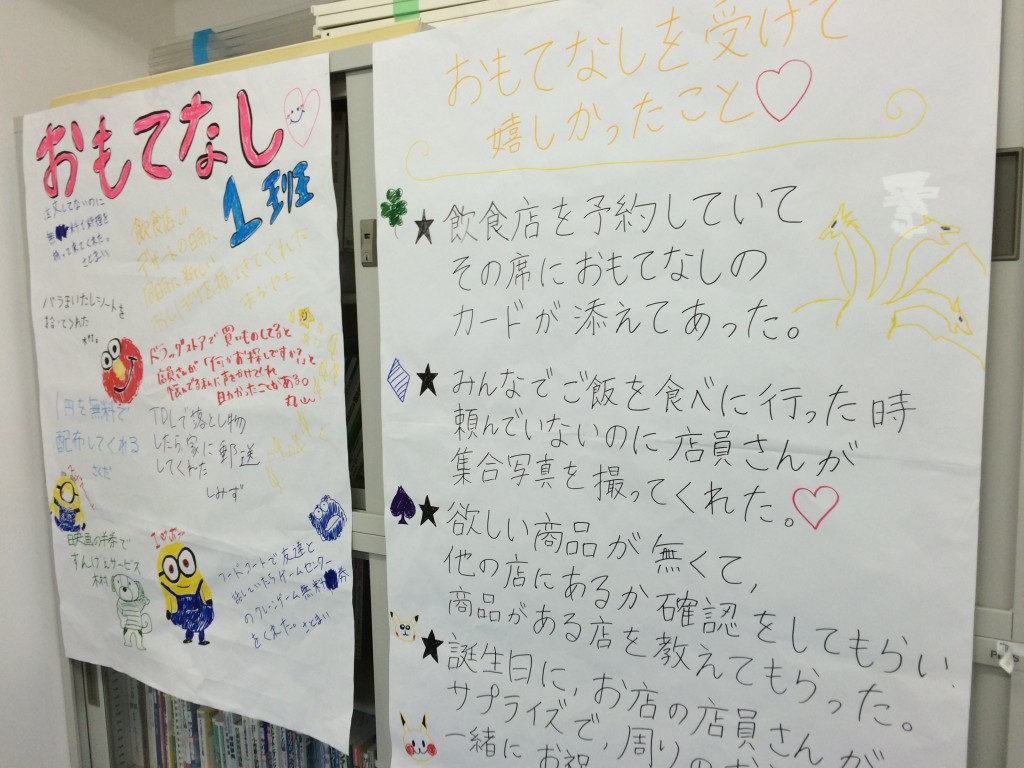 おもてなし
1班
注文してないのに
無料で料理を
持って来てくれた。
飲食店で
バラまいたレシートを
拾てうれた
ドラッグストアで買いものしてると
店員さんが「何かお探しですか?」と
悩んでる私に声をかけてくれ
助かったことがある。
1日を無料で
配布してくれる
TDLで落とし物
したら家に郵送
してくれた
しみず
映画の半券で
すんげえサービス
フードコートで友達と
話していたらゲームセンター
のクレーンゲーム無料券
をくれた。
おもてなしを受けて
嬉しかったこと♡
★飲食店を予約していて
その席におもてなしの
カードが添えてあった。
★みんなでご飯を食べに行った時
頼んでいないのに店員さんが
集合写真を撮ってくれた。♡
★欲しい商品が無くて、
他の店にあるか確認をしてもらい、
商品がある店を教えてもらった。
★誕生日に、お店の店員さんが
サプライズで、周りの
一緒にお祝